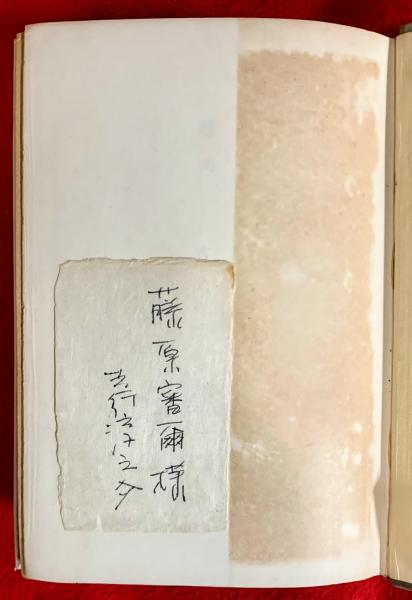 藤原審爾様
吉行淳之介